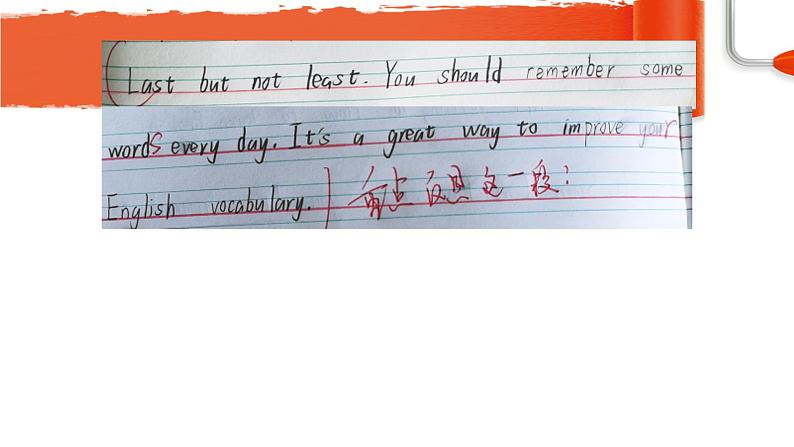 Last but not least. You should remember some
words every day. It's a great way to improve your
English vocabulary. 反思这一段!